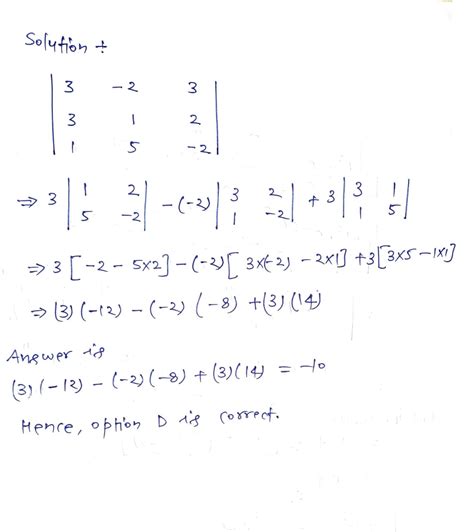 Solution ÷
| 3 -2 3 |
| 3 1 2 |
| 1 5 -2 |
⇒ 3 | 1 2 | -(-2) | 3 2 | + 3 | 3 1 |
| 5 -2 | | 1 -2 | | 1 5 |
⇒ 3 [-2 - 5x2] - (-2) [ 3x(-2) - 2x1] +3[3x5 - 1x1]
⇒ (3) (-12) - (-2) (-8) +(3) (14)
Answer is
(3) (-12) - (-2) (-8) + (3) (14) = -10
Hence, option D is correct.